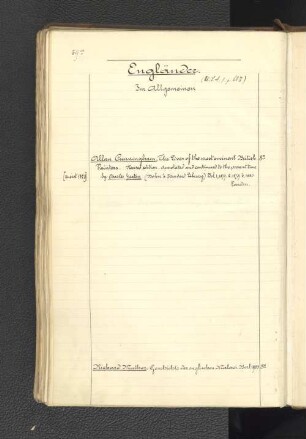 Engländer.
Im Allgemeinen
Allan Cunningham, The Lives of the most eminent British
Painters. Revised edition, annotated and continued to the present time
by Charles Heaton (Bohn's Standard Library) Vol. I, 1879, II, 1879, III, 1880
London.
Richard Muther, Geschichte der englischen Malerei. Berl. 1903